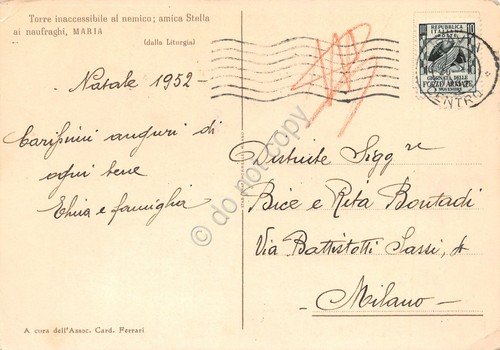 Torre inaccessibile al nemico; amica Stella
ai naufraghi, MARIA
(dalla Liturgia)
Natale 1952
Carissimi auguri di
ogni bene
Elvira e famiglia
A cura dell'Assoc. Card. Ferrari
REPUBBLICA
ITALIANA
10
GIORNATA DELLE
FORZE ARMATE
4 NOVEMBRE
CENTRO
Distinte Sigg.re
Bice e Rita Bontadi
Via Battistotti Sassi, 4
Milano
© do not copy